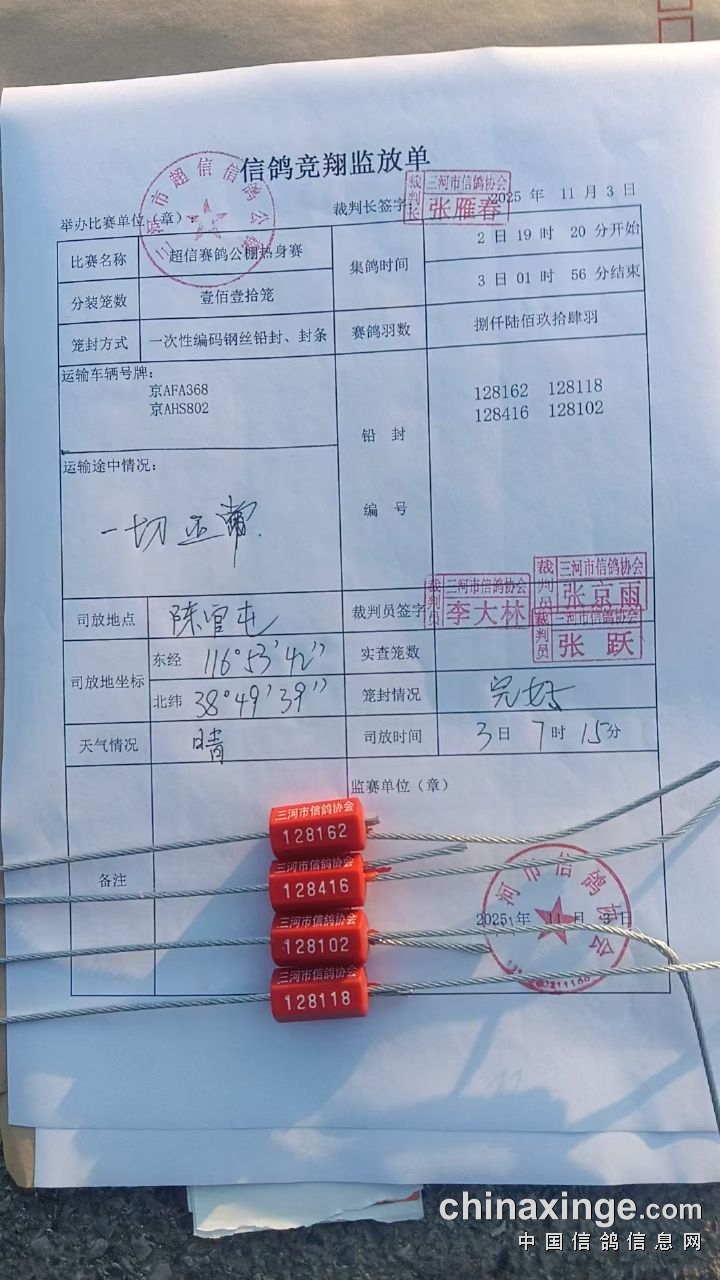 信鸽竞翔监放单
举办比赛单位（章）
裁判长签字：
2025 年 11 月 3 日
三河市超信信鸽公棚
裁判长
三河市信鸽协会
张雁春
比赛名称 超信赛鸽公棚热身赛
集鸽时间 2 日 19 时 20 分开始
3 日 01 时 56 分结束
分装笼数 壹佰壹拾笼
笼封方式 一次性编码钢丝铅封、封条
赛鸽羽数 捌仟陆佰玖拾肆羽
运输车辆号牌：
京AFA368
京AHS802
铅 封
编 号
128162 128118
128416 128102
运输途中情况：
一切正常.
司放地点 陈官屯
裁判员签字
裁判员 三河市信鸽协会 李大林
裁判员 三河市信鸽协会 张京雨
裁判员 三河市信鸽协会 张跃
司放地坐标 东经 116°53′42″
北纬 38°49′39″
实查笼数
笼封情况 完好
天气情况 晴
司放时间 3日 7时 15分
备注
监赛单位（章）
三河市信鸽协会
128162
三河市信鸽协会
128416
三河市信鸽协会
128102
三河市信鸽协会
128118
河市信鸽协会
2025 年 11 月 3 日
chinaxinge.com
中国信鸽信息网